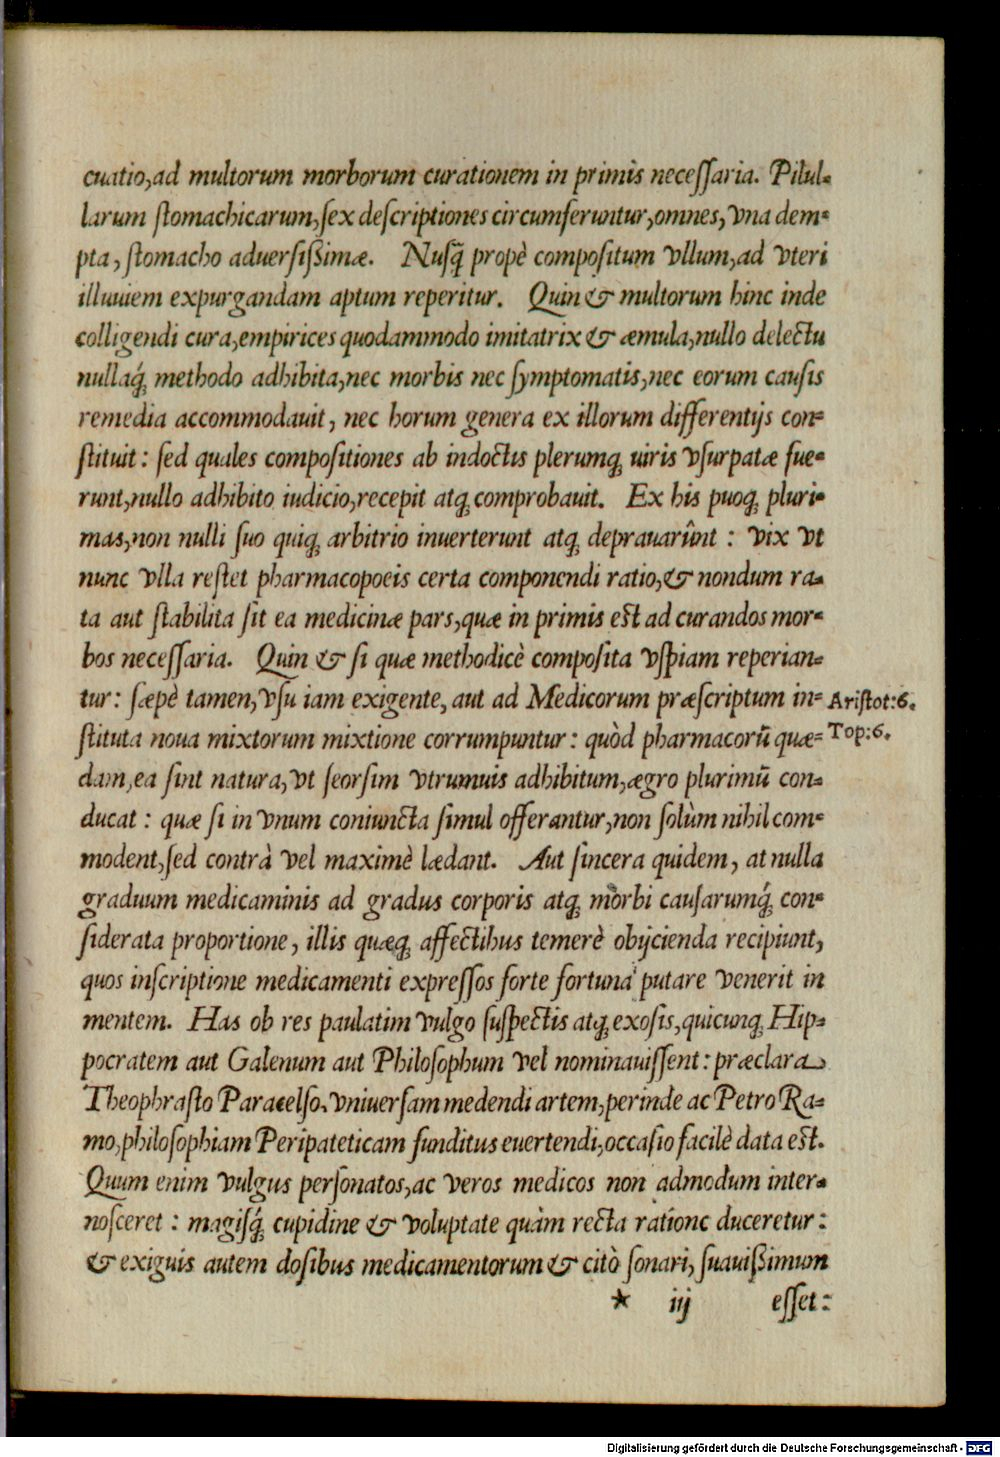 cuatio,ad multorum morborum curationem in primis necessaria. Pilul-
larum stomachicarum,sex descriptiones circumferuntur,omnes, vna dem-
pta, stomacho aduersissimæ. Nusq̃ propè compositum vllum,ad vteri
illuuiem expurgandam aptum reperitur. Quin & multorum hinc inde
colligendi cura,empirices quodammodo imitatrix & æmula,nullo delectu
nullaq́; methodo adhibita,nec morbis nec symptomatis,nec eorum causis
remedia accommodauit, nec horum genera ex illorum differentijs con=
stituit: sed quales compositiones ab indoctis plerumq; uiris vsurpatæ fue-
runt,nullo adhibito iudicio,recepit atq; comprobauit. Ex his puoq; pluri-
mas,non nulli suo quiq; arbitrio inuerterunt atq; deprauarûnt : vix vt
nunc vlla restet pharmacopoeis certa componendi ratio,& nondum ra-
ta aut stabilita sit ea medicinæ pars,quæ in primis est ad curandos mor-
bos necessaria. Quin & si quæ methodicè composita vspiam reperian=
tur: sæpè tamen,vsu iam exigente, aut ad Medicorum præscriptum in=
Aristot:6.
stituta noua mixtorum mixtione corrumpuntur: quòd pharmacorũ quæ=
Top:6.
dam,ea sint natura,vt seorsim vtrumuis adhibitum,ægro plurimũ con-
ducat : quæ si in vnum coniuncta simul offerantur,non solùm nihil com-
modent,sed contrà vel maximè lædant. Aut sincera quidem, at nulla
graduum medicaminis ad gradus corporis atq; morbi causarumq́; con-
siderata proportione, illis quæq; affectibus temerè obijcienda recipiunt,
quos inscriptione medicamenti expressos forte fortuna putare venerit in
mentem. Has ob res paulatim vulgo suspectis atq; exosis,quicunq; Hip-
pocratem aut Galenum aut Philosophum vel nominauissent: præclara
Theophrasto Paracelso, vniuersam medendi artem,perinde ac Petro Ra=
mo,philosophiam Peripateticam funditus euertendi,occasio facilè data est.
Quum enim vulgus personatos,ac veros medicos non admodum inter-
nosceret : magisq́; cupidine & voluptate quàm recta ratione duceretur:
& exiguis autem dosibus medicamentorum & citò sonari, suauissimum
★ iij esset:
Digitalisierung gefördert durch die Deutsche Forschungsgemeinschaft - DFG